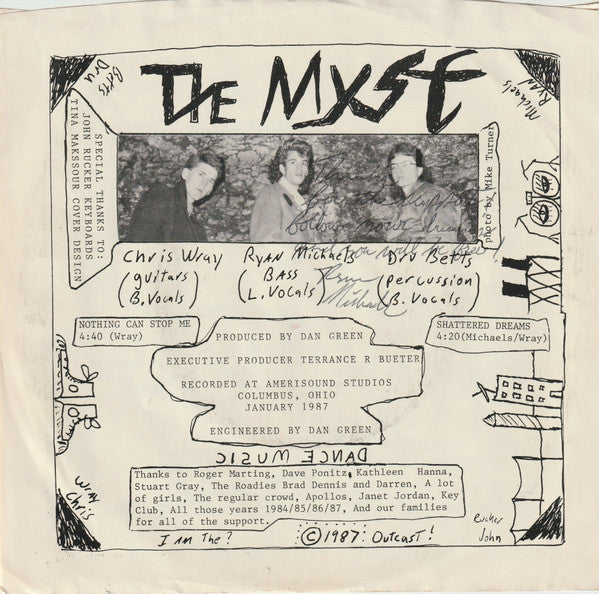 Betts
Dru
THE MYST
Michaels
RYAN
SPECIAL THANKS TO:
JOHN RUCKER KEYBOARDS
TINA MAKSSOUR COVER DESIGN
photo by Mike Turner
Chris Wray
(guitars)
(B. Vocals)
Ryan Michaels
BASS
(L. Vocals)
Dru Betts
(percussion
(B. Vocals)
follow your dreams
Ryan
Michaels
NOTHING CAN STOP ME
4:40 (Wray)
SHATTERED DREAMS
4:20(Michaels/Wray)
PRODUCED BY DAN GREEN
EXECUTIVE PRODUCER TERRANCE R BUETER
RECORDED AT AMERISOUND STUDIOS
COLUMBUS, OHIO
JANUARY 1987
ENGINEERED BY DAN GREEN
DANCE MUSIC
Thanks to Roger Marting, Dave Ponitz, Kathleen Hanna,
Stuart Gray, The Roadies Brad Dennis and Darren, A lot
of girls, The regular crowd, Apollos, Janet Jordan, Key
Club, All those years 1984/85/86/87, And our families
for all of the support.
Wray
Chris
I AM THE?
©1987 Outcast!
Rucker
John